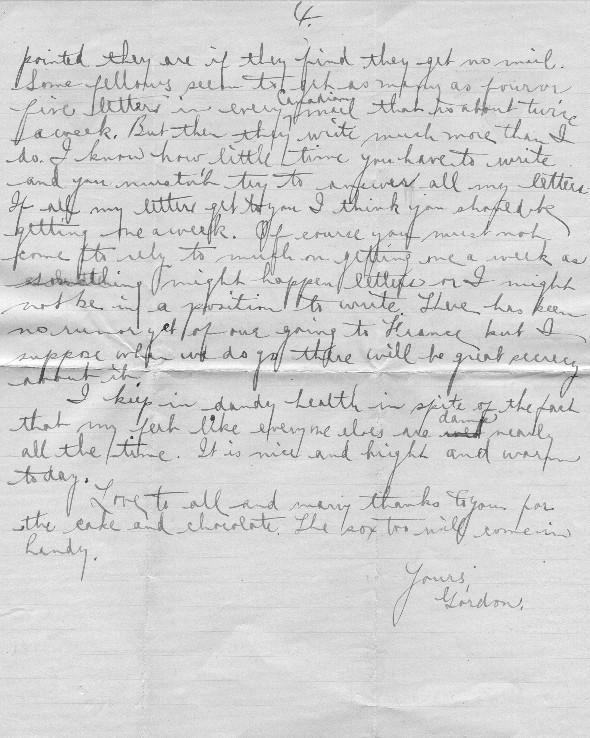 4.
pointed they are if they find they get no mail.
Some fellows seem to get as many as four or
five letters in every Canadian mail that is about twice
a week. But then they write much more than I
do. I know how little time you have to write
and you mustn't try to answer all my letters.
If all my letters get to you I think you should be
getting one a week. Of course you must not
come to rely to much on getting one a week as
something might happen letters or I might
not be in a position to write. There has been
no rumor yet of our going to France but I
suppose when we do go there will be great secrecy
about it.
I keep in dandy health in spite of the fact
that my feet like everyone elses are damp nearly
all the time. It is nice and bright and warm
today.
Love to all and many thanks to you for
the cake and chocolate. The sox too will come in
handy.
Yours,
Gordon.